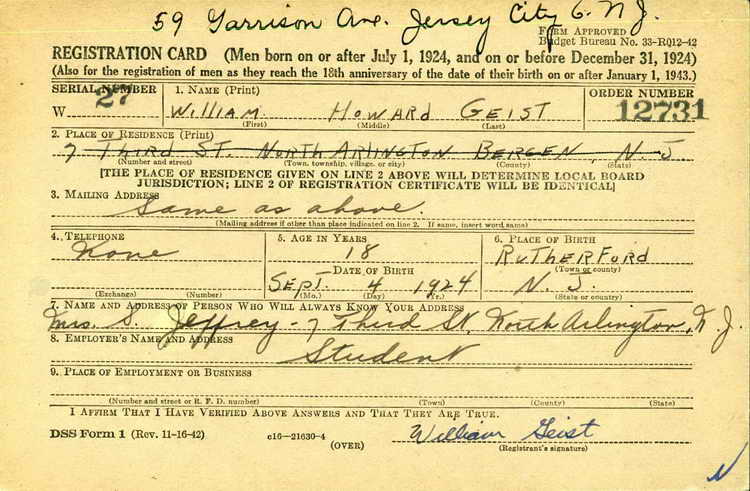 59 Garrison Ave. Jersey City 6. N.J.
FORM APPROVED
Budget Bureau No. 33-RQ12-42
REGISTRATION CARD (Men born on or after July 1, 1924, and on or before December 31, 1924)
(Also for the registration of men as they reach the 18th anniversary of the date of their birth on or after January 1, 1943.)
SERIAL NUMBER 1. NAME (Print) ORDER NUMBER
W 27 WILLIAM HOWARD GEIST 12731
(First) (Middle) (Last)
2. PLACE OF RESIDENCE (Print)
7 THIRD ST. NORTH ARLINGTON BERGEN, N. J
(Number and street) (Town, township, village, or city) (County) (State)
[THE PLACE OF RESIDENCE GIVEN ON LINE 2 ABOVE WILL DETERMINE LOCAL BOARD
JURISDICTION; LINE 2 OF REGISTRATION CERTIFICATE WILL BE IDENTICAL]
3. MAILING ADDRESS
Same as above.
(Mailing address if other than place indicated on line 2. If same, insert word same)
4. TELEPHONE 5. AGE IN YEARS 6. PLACE OF BIRTH
None 18 RUTHERFORD
(Town or county)
DATE OF BIRTH
SEPT. 4 1924 N. J.
(Exchange) (Number) (Mo.) (Day) (Yr.) (State or country)
7. NAME AND ADDRESS OF PERSON WHO WILL ALWAYS KNOW YOUR ADDRESS
Mrs. S. Jeffrey - 7 Third St. North Arlington, N. J.
8. EMPLOYER'S NAME AND ADDRESS
Student
9. PLACE OF EMPLOYMENT OR BUSINESS
(Number and street or R. F. D. number) (Town) (County) (State)
I AFFIRM THAT I HAVE VERIFIED ABOVE ANSWERS AND THAT THEY ARE TRUE.
DSS Form 1 (Rev. 11-16-42) c16-21630-4 William Geist
(OVER) (Registrant's signature)
N